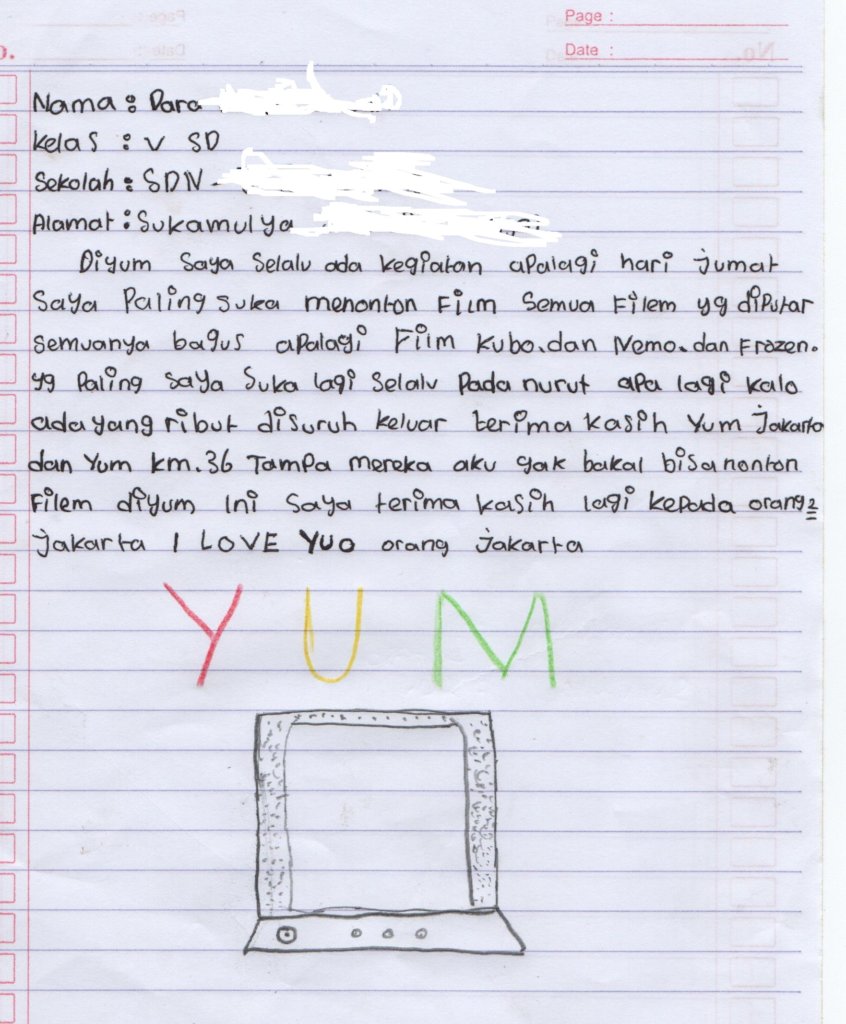 Page :
Date :
No.
Nama : Dara
Kelas : V SD
Sekolah : SDN
Alamat : Sukamulya
Diyum saya selalu ada kegiatan apalagi hari jumat
saya Paling suka menonton Film Semua Filem yg diputar
semuanya bagus apalagi Film Kubo.dan Nemo.dan Frozen.
yg Paling saya suka lagi selalu pada nurut apa lagi kalo
ada yang ribut disuruh keluar terima kasih Yum jakarta
dan Yum km.36 Tampa mereka aku gak bakal bisa nonton
Filem diyum ini saya terima kasih lagi kepada orang2
jakarta I LOVE YUO orang jakarta
YUM